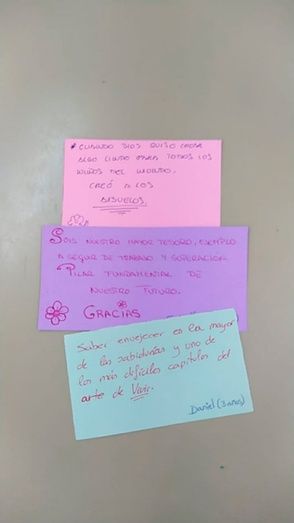 CUANDO DIOS QUISO CREAR
ALGO LINDO PARA TODOS LOS
NIÑOS DEL MUNDO,
CREÓ A LOS
ABUELOS
SOIS NUESTRO MAYOR TESORO, EJEMPLO
A SEGUIR DE TRABAJO Y SUPERACIÓN
PILAR FUNDAMENTAL DE
NUESTRO FUTURO.
GRACIAS
Saber envejecer es la mayor
de las sabidurías y uno de
los más difíciles capítulos del
arte de Vivir.
Daniel (3 años)